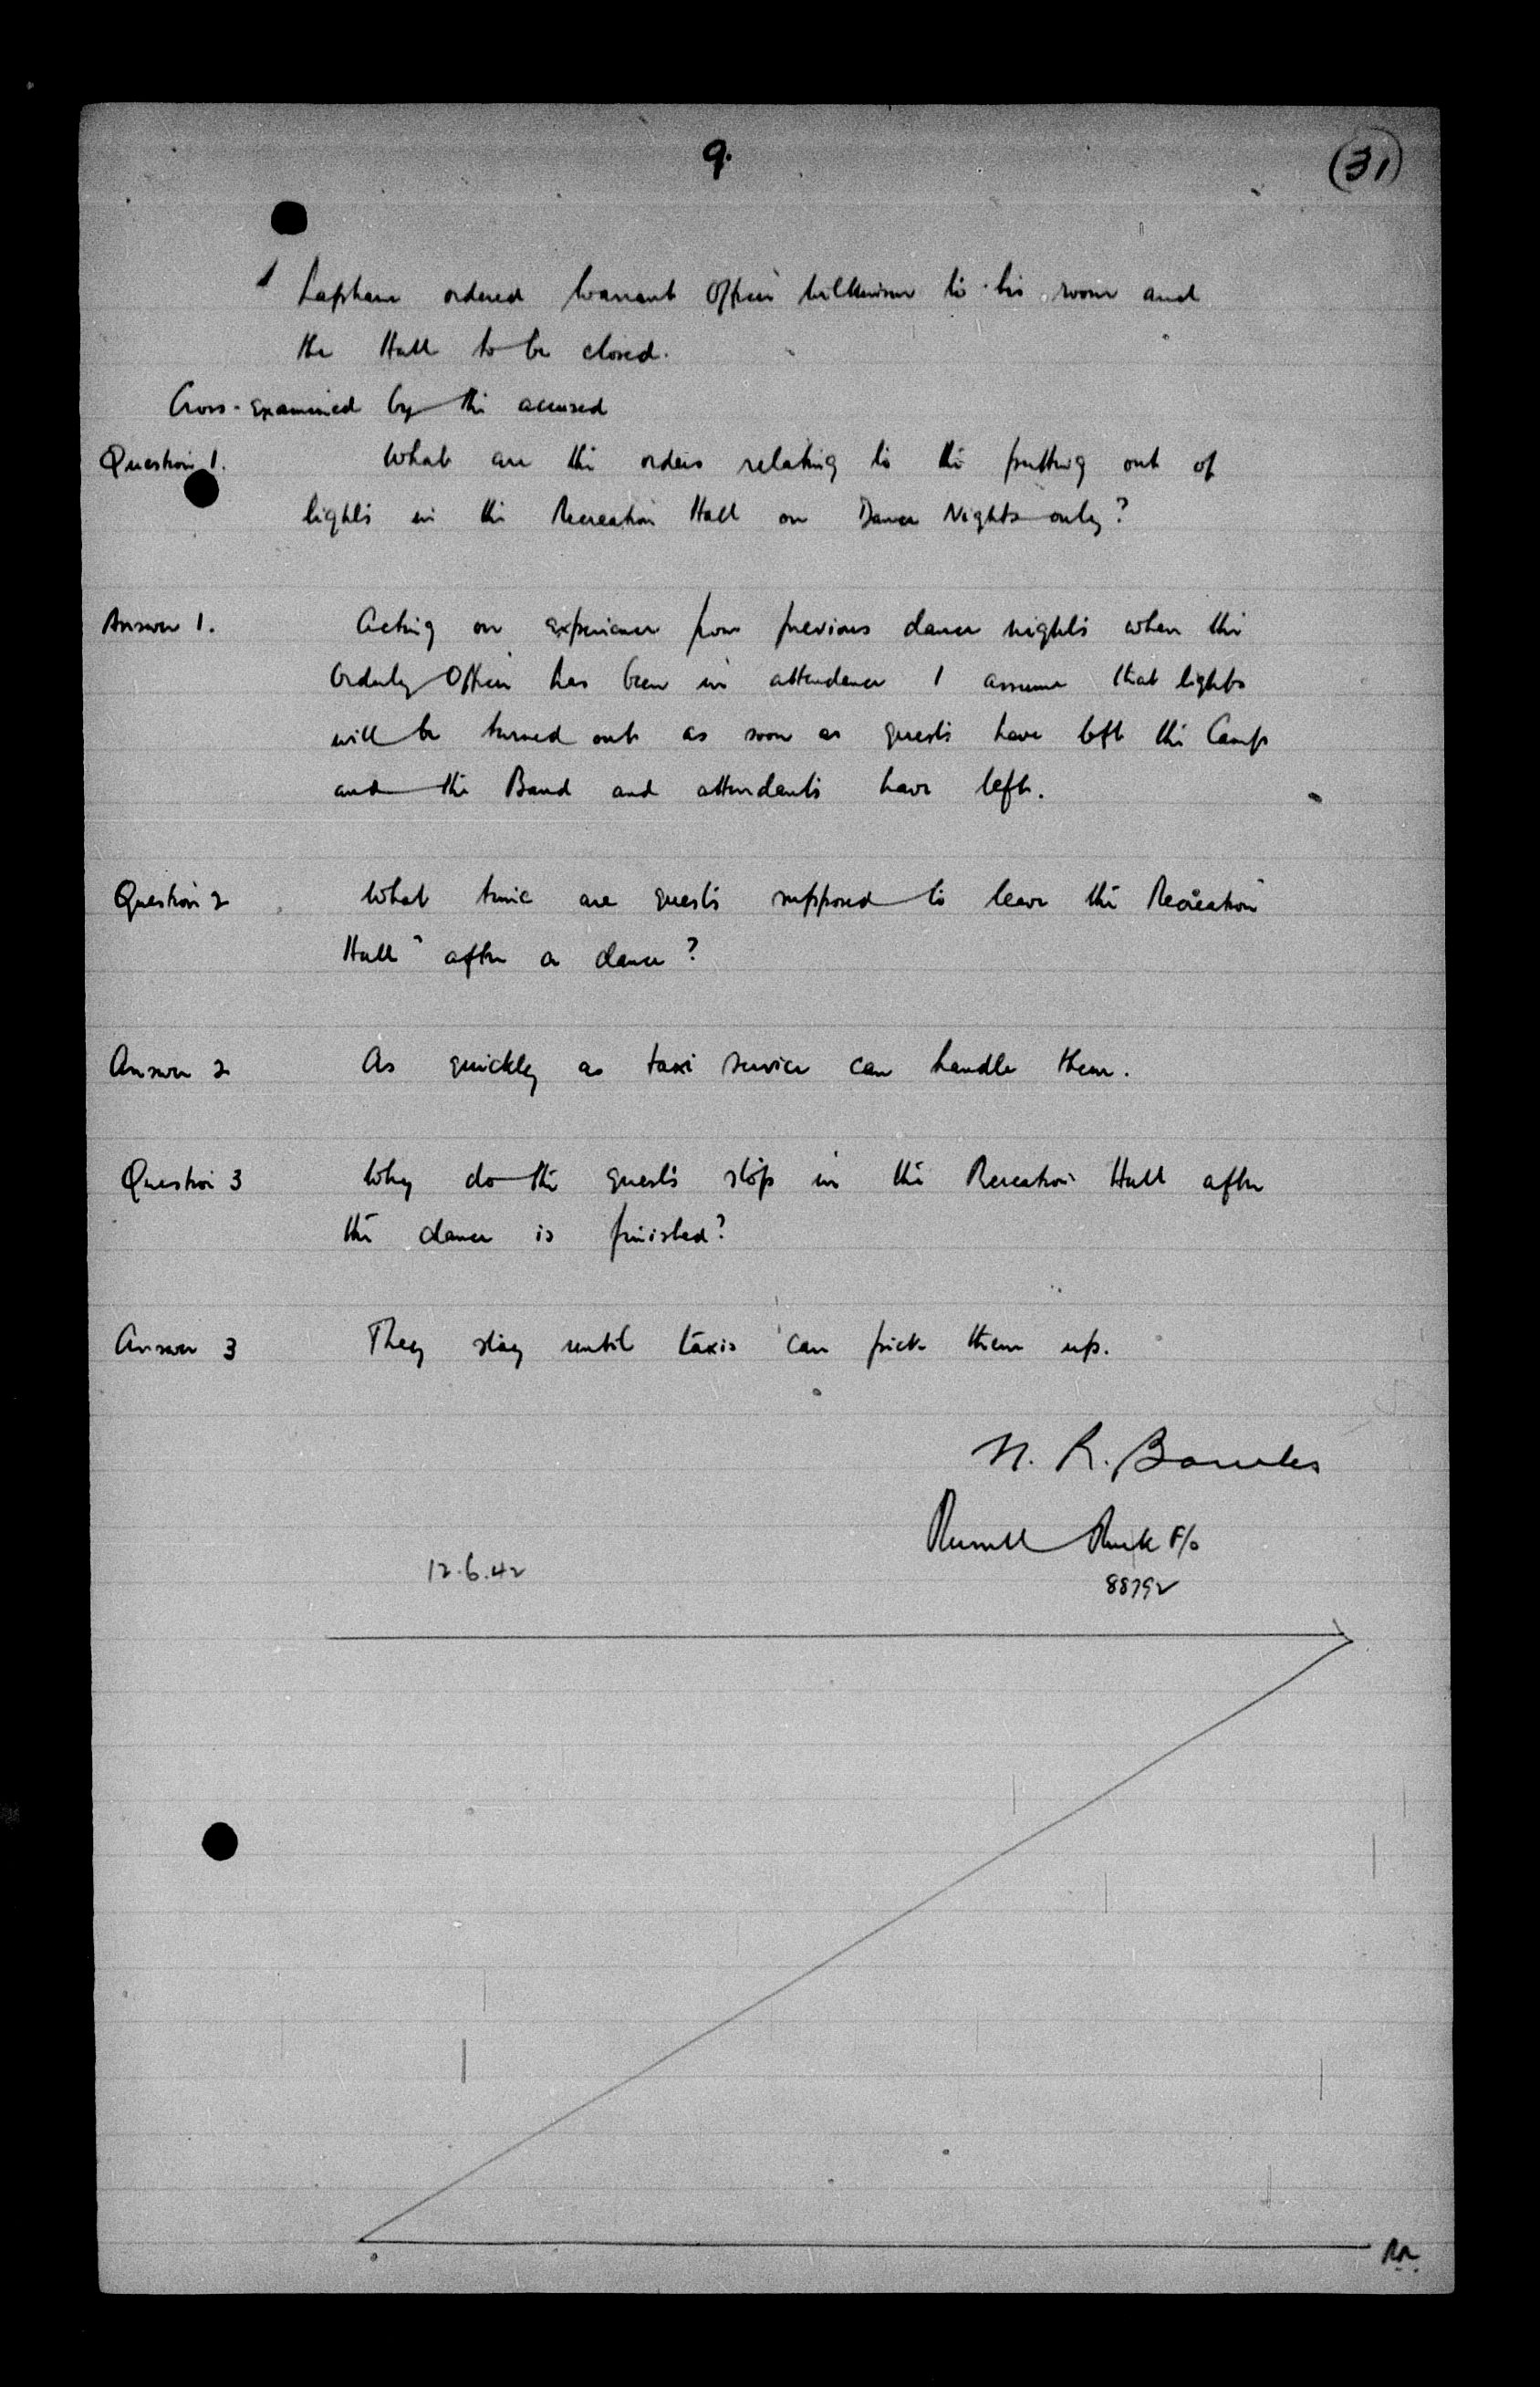 9.
(31)
Lapham ordered Warrant Officer Wilkinson to his room and
the Hall to be closed.
Cross-examined by the accused
Question 1. What are the orders relating to the putting out of
lights in the Recreation Hall on Dance Nights only?
Answer 1. Acting on experience from previous dance nights when the
Orderly Officer has been in attendance I assume that lights
will be turned out as soon as guests have left the Camp
and the Band and attendants have left.
Question 2 What time are guests supposed to leave the "Recreation
Hall" after a dance?
Answer 2 As quickly as taxi service can handle them.
Question 3 Why do the guests stop in the Recreation Hall after
the dance is finished?
Answer 3 They stay until taxis can pick them up.
N. R. Bowles
Russell F/o
12.6.42
88792